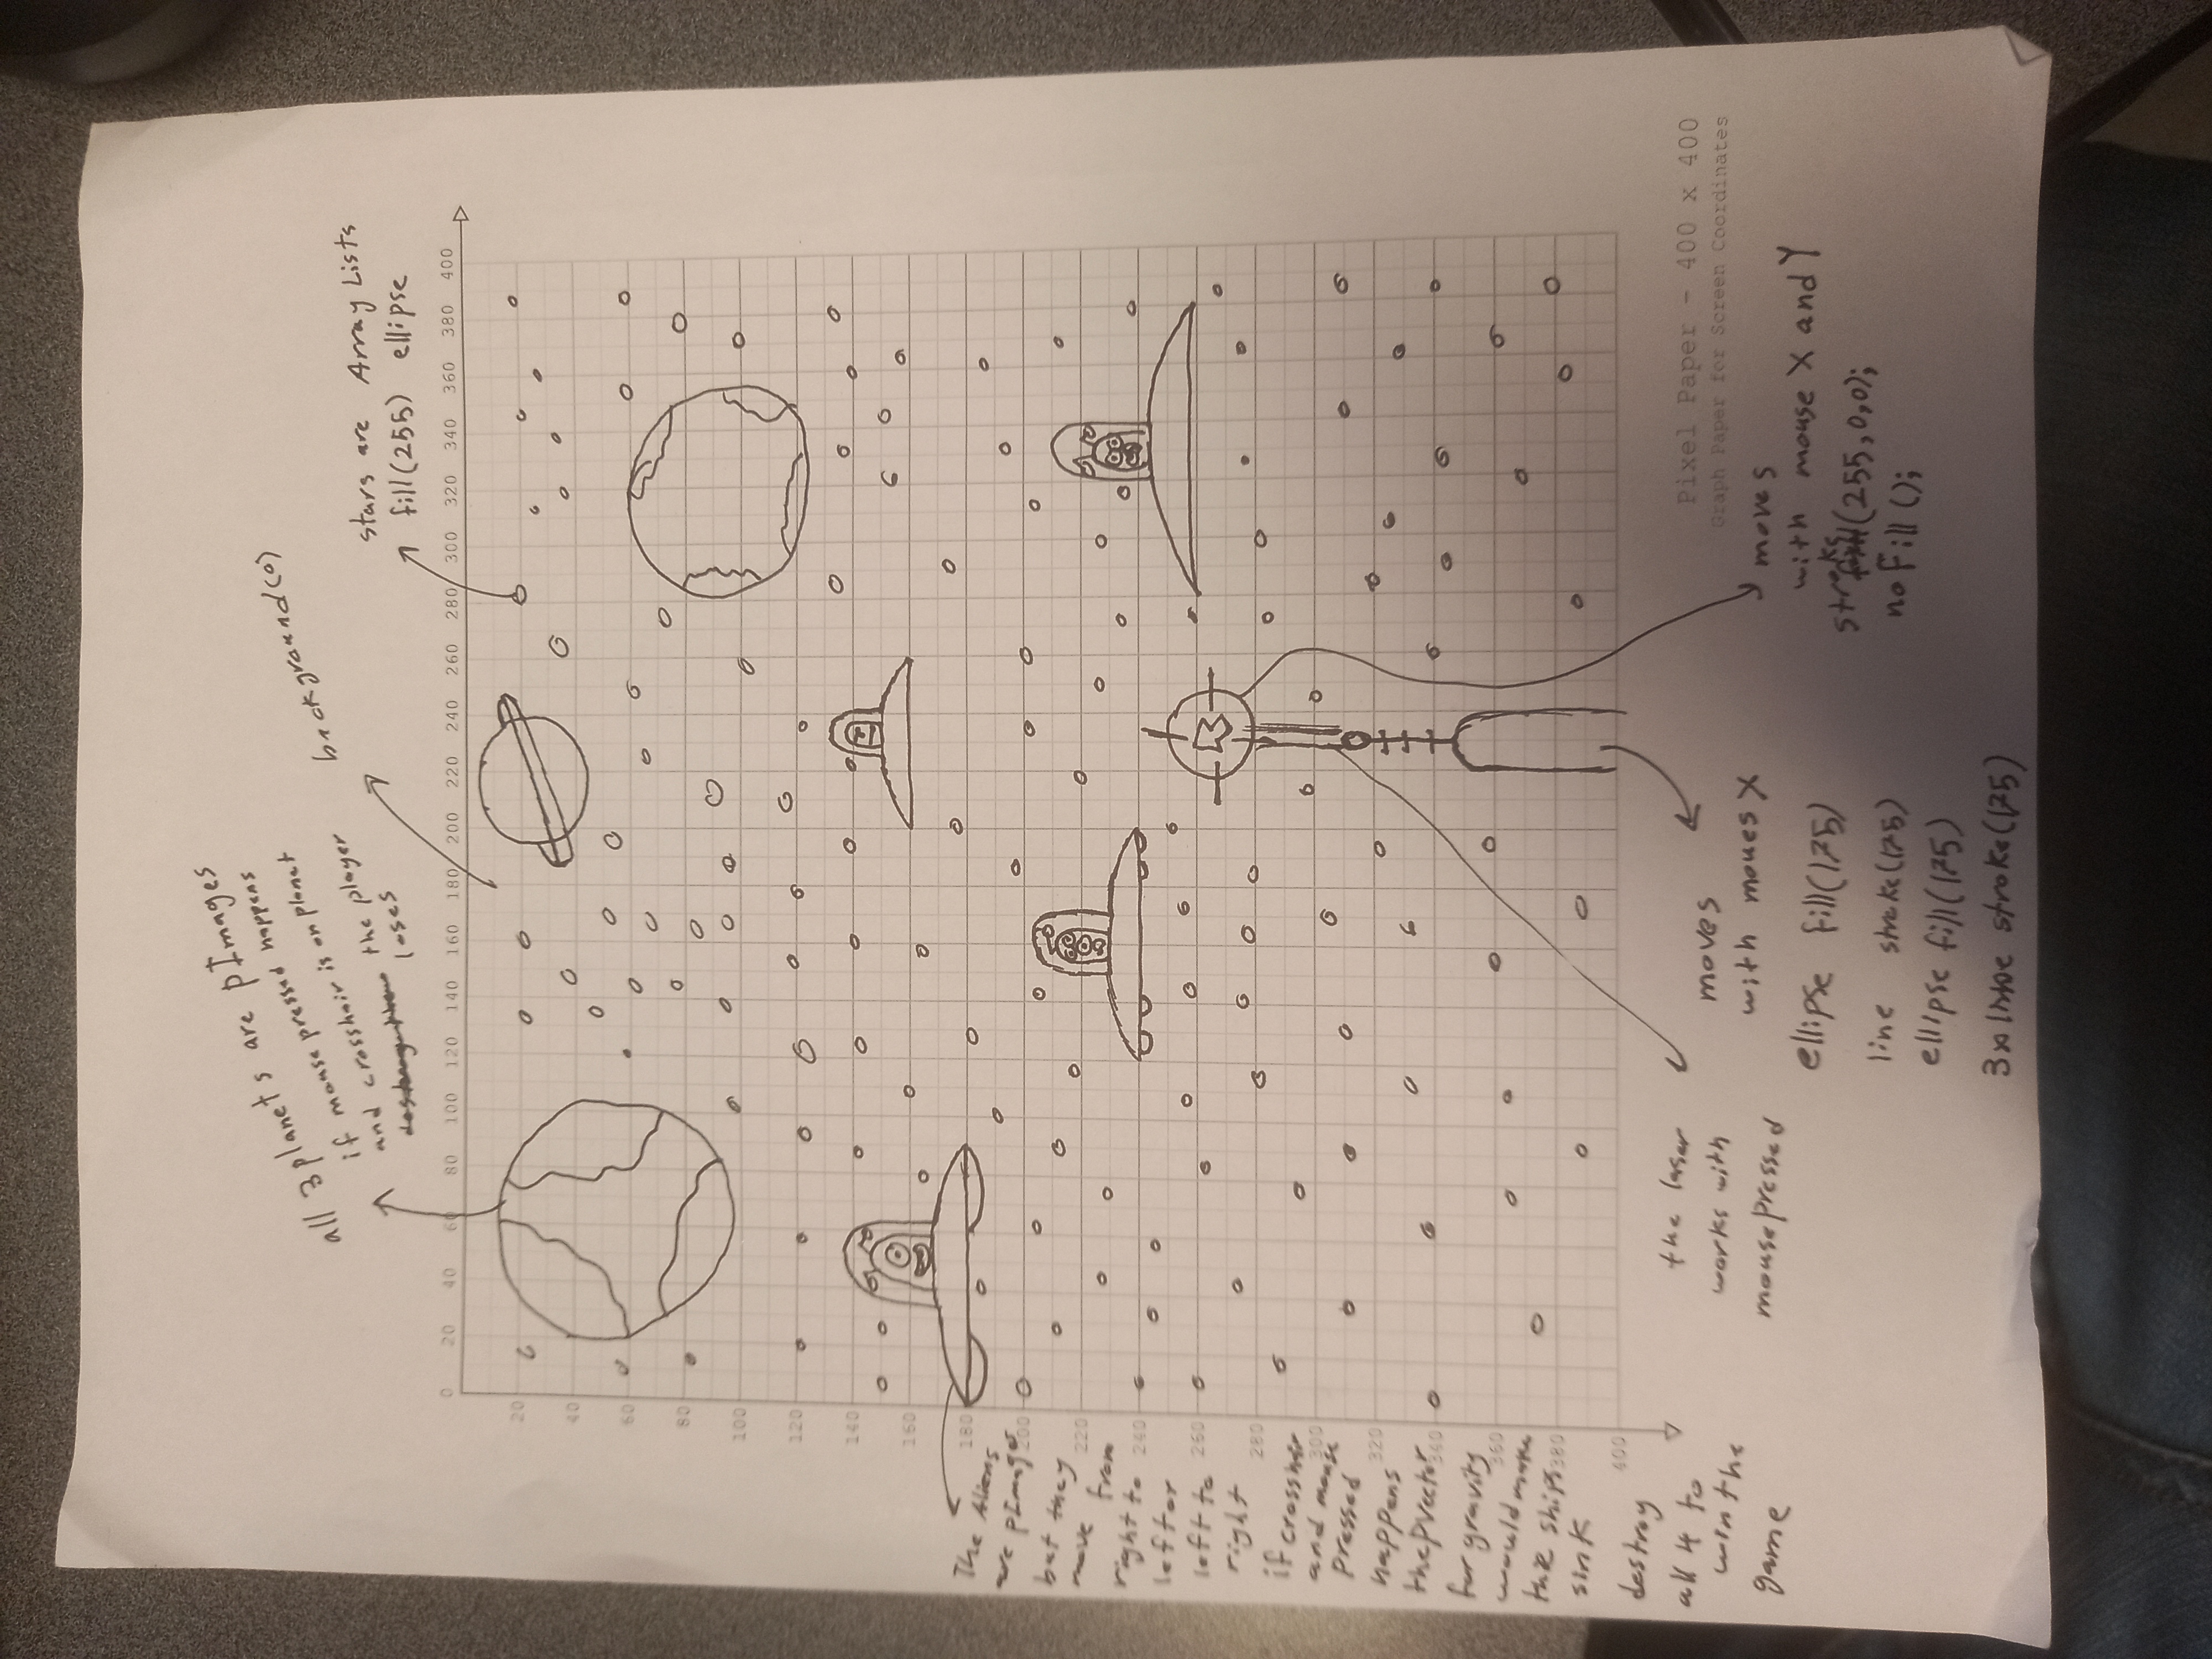 all 3 planets are pImages
if mouse pressed happens
and crosshair is on planet
the player
loses
background(0)
stars are Array Lists
fill(255) ellipse
0 20 40 60 80 100 120 140 160 180 200 220 240 260 280 300 320 340 360 380 400
20
40
60
80
100
120
140
160
180
200
220
240
260
280
300
320
340
360
380
400
The Aliens
are pImages
but they
move from
right to
left or
left to
right
if crosshair
and mouse
pressed
happens
the pVector
for gravity
would make
the ships
sink
destroy
all 4 to
win the
game
the laser
works with
mousepressed
moves
with moues X
ellipse fill(175)
line stroke(175)
ellipse fill(175)
3x line stroke(175)
Pixel Paper - 400 x 400
Graph Paper for Screen Coordinates
moves
with mouse X and Y
stroke(255,0,0);
nofill();